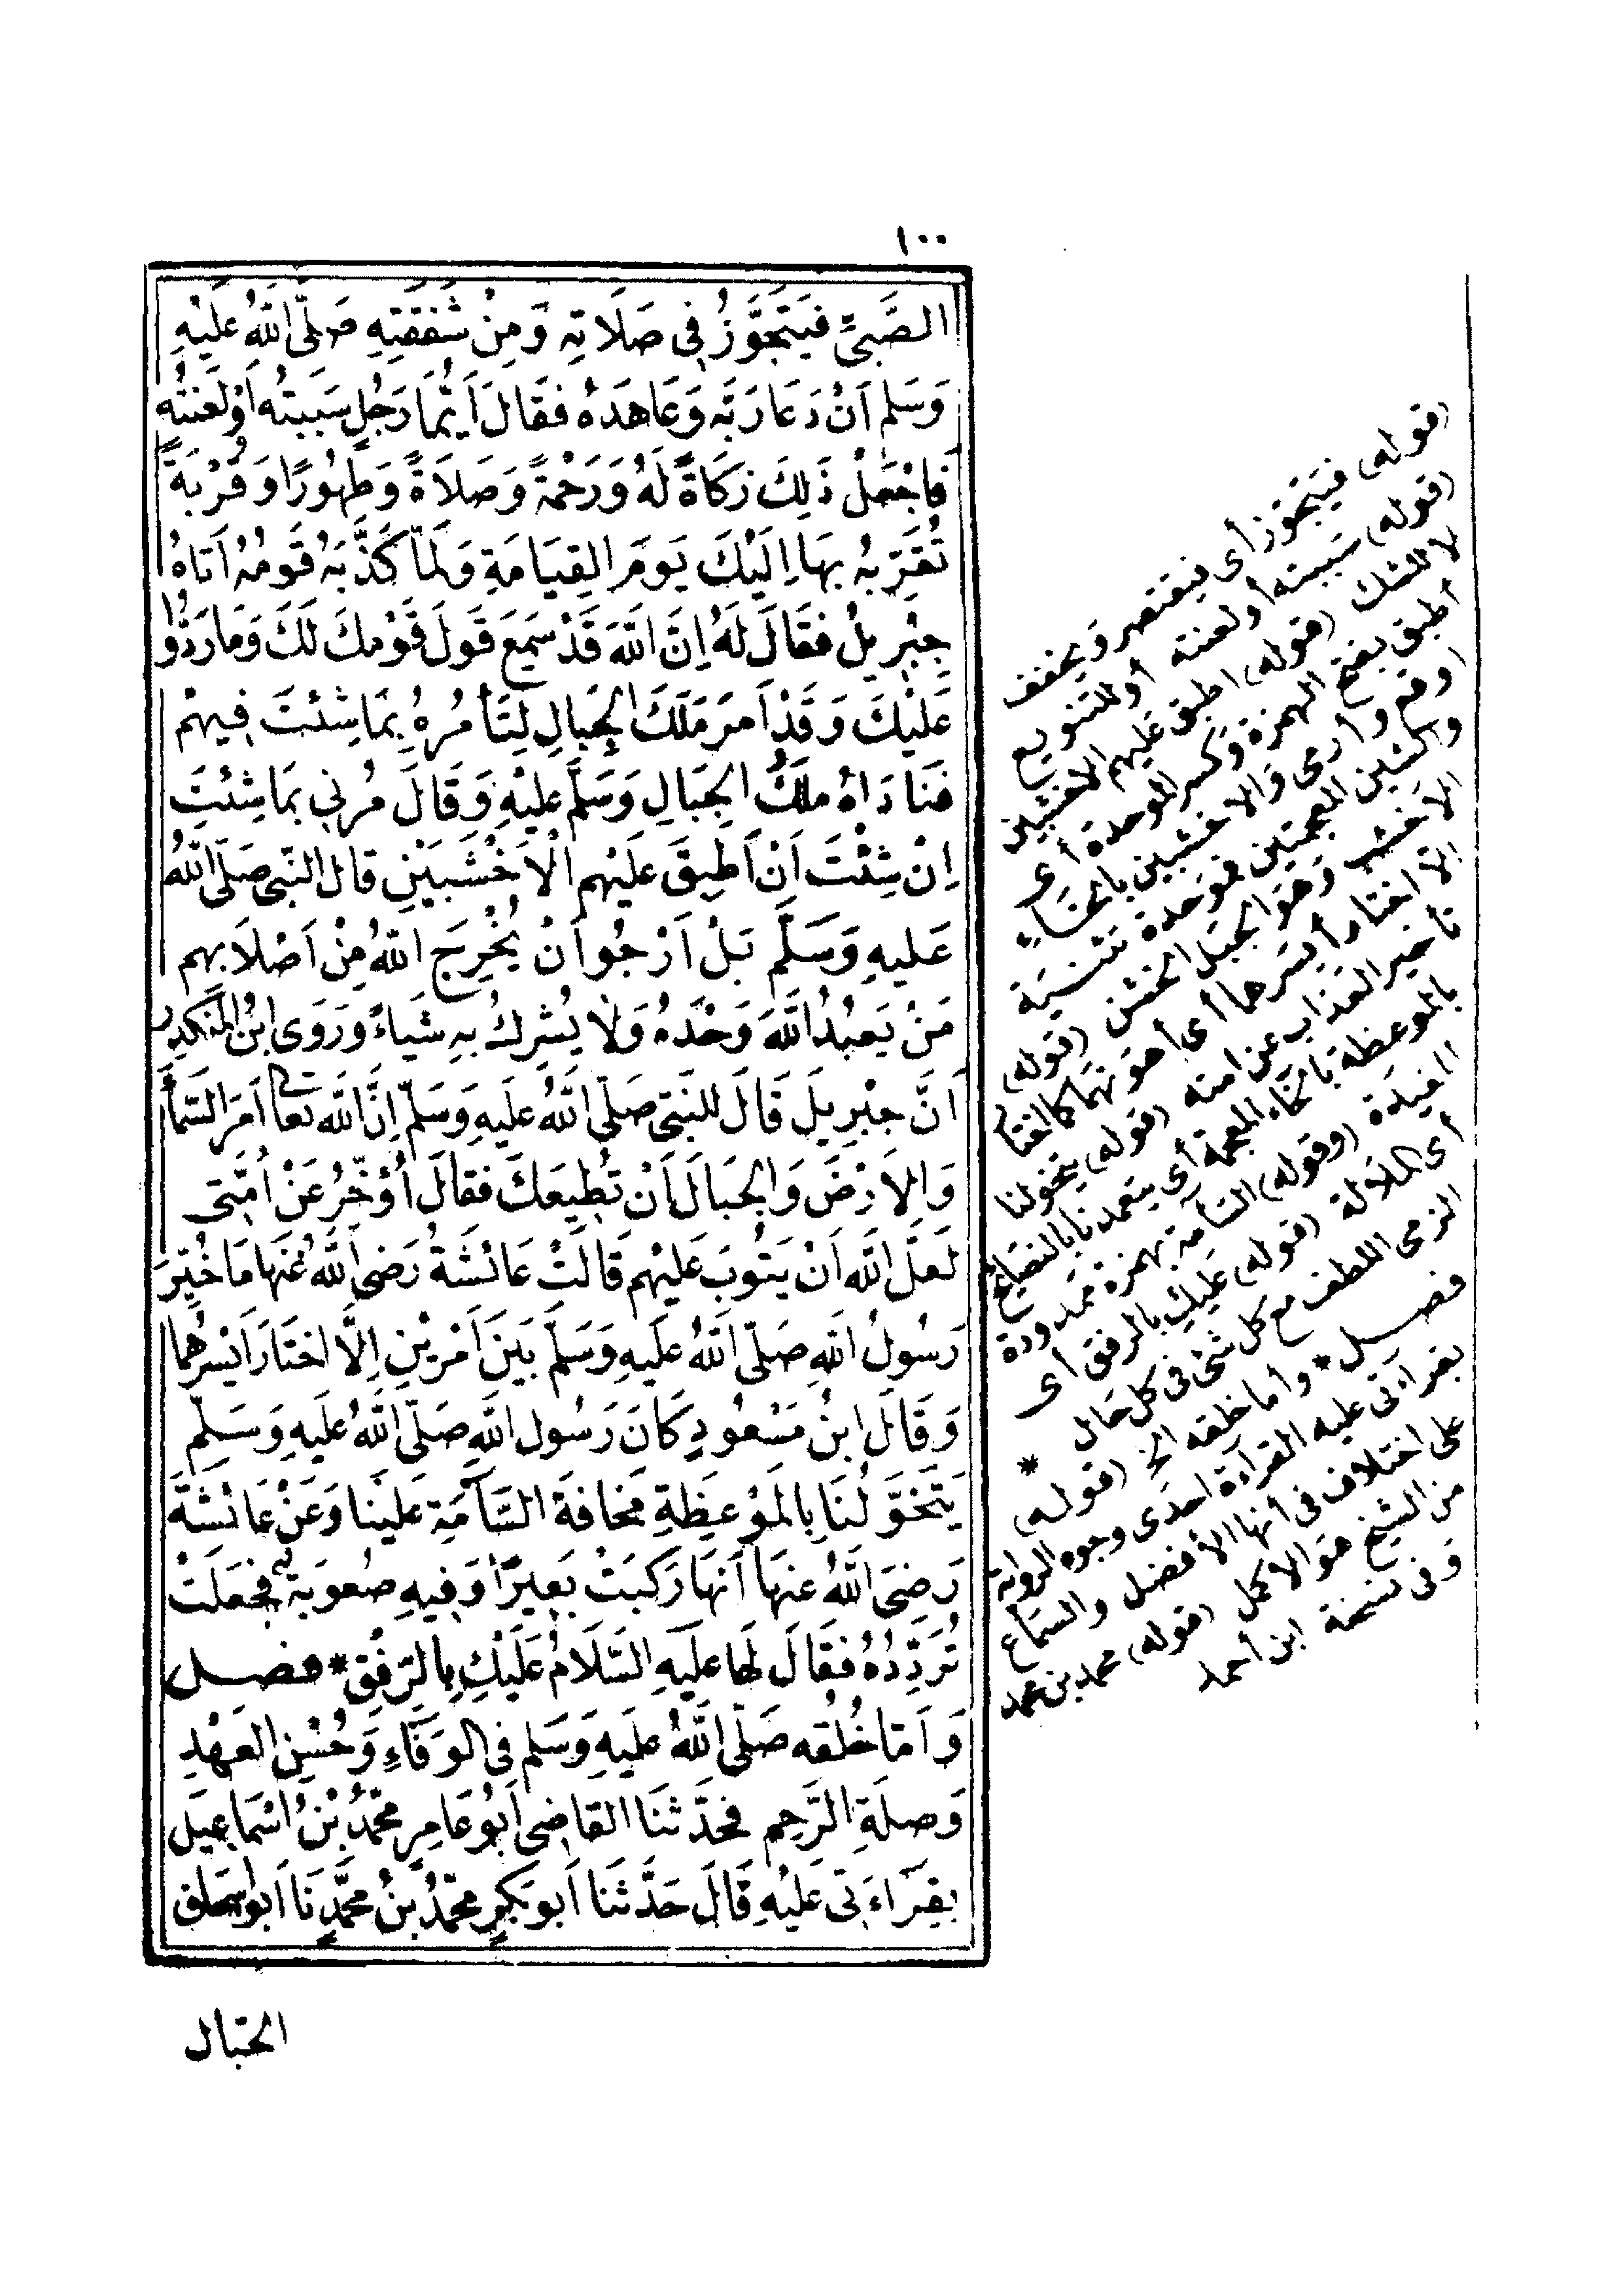 ١٠٠
الصَّبِيِّ فَيَتَجَوَّزُ فِي صَلَاتِهِ وَمِنْ شَفَقَتِهِ صَلَّى اللّٰهُ عَلَيْهِ
وَسَلَّمَ اَنْ دَعَا رَبَّه وَعَاهَدَهُ فَقَالَ اَيُّمَا رَجُلٍ سَبَبْتُه اَوْ لَعَنْتُه
فَاجْعَلْ ذٰلِكَ زَكَاةً لَهُ وَرَحْمَةً وَصَلَاةً وَطَهُورًا وَقُرْبَةً
تُقَرِّبُهُ بِهَا اِلَيْكَ يَوْمَ القِيَامَةِ وَلَمَّا كَذَّبَهُ قَوْمُهُ اَتَاهُ
جِبْرِيلُ فَقَالَ لَهُ اِنَّ اللّٰهَ قَدْ سَمِعَ قَوْلَ قَوْمِكَ لَكَ وَمَا رَدُّوا
عَلَيْكَ وَقَدْ اَمَرَ مَلَكَ الْجِبَالِ لِتَأْمُرَهُ بِمَا شِئْتَ فِيهِمْ
فَنَادَاهُ مَلَكُ الْجِبَالِ وَسَلَّمَ عَلَيْهِ وَقَالَ مُرْنِي بِمَا شِئْتَ
اِنْ شِئْتَ اَنْ اُطْبِقَ عَلَيْهِم الْاَخْشَبَيْنِ قالَ النَّبِي صَلَّى اللّٰهُ
عَلَيهِ وَسَلَّمَ بَلْ اَرْجُو اَنْ يُخْرِجَ اللّٰهُ مِنْ اَصْلَابِهِم
مَنْ يَعْبُدُ اللّٰهَ وَحْدَهُ وَلَا يُشْرِكُ بِهِ شَيْاءً وَرَوَى ابْنُ المُنْكَدِر
اَنَّ جِبْرِيلَ قَالَ لِلنَّبِي صَلَّى اللّٰهُ عَلَيهِ وَسَلَّمَ اِنَّ اللّٰه تعالى اَمَرَ السَّمَاءَ
وَالْاَرْضَ وَالجِبَالَ اَنْ تُطِيعَكَ فَقالَ اُؤَخِّرُ عَنْ اُمَّتِي
لَعَلَّ اللّٰهَ اَنْ يَتُوبَ عَلَيْهِم قَالَتْ عَائشَةُ رَضِي اللّٰهُ عَنْهَا مَا خُيِّرَ
رَسُولُ اللّٰهِ صَلَّى اللّٰهُ عَلَيهِ وَسَلَّمَ بَيْنَ اَمْرَيْنِ اِلَّا اخْتَارَ اَيْسَرَهُمَا
وَقَالَ ابْنُ مَسْعُودٍ كَانَ رَسُول اللّٰهِ صَلَّى اللّٰهُ عَلَيهِ وَسَلَّمَ
يَتَخَوَّلُنَا بِالمَوْعِظَةِ مَخَافَةَ السَّآمَةِ عَلَيْنَا وَعَنْ عَائشَةَ
رَضِيَ اللّٰهُ عنهَا اَنَّهَا رَكِبَتْ بَعِيرًا وَفِيهِ صُعُوبَةٌ فَجَعَلَتْ
تُرَدِّدُهُ فَقَالَ لَهَا عَلَيهِ السَّلَامُ عَلَيْكِ بِالرِّفْقِ * فصـل
وَاَمَّا خُلُقُه صَلَّى اللّٰهُ عَلَيهِ وَسَلم فِي الوَفَاءِ وَحُسْنِ العَهْدِ
وَصِلَةِ الرَّحِمِ فَحَدَّثَنَا القَاضِي اَبُو عَامِرٍ مُحَمَّدُ بْنُ اسْمَاعِيلَ
بِقِرَاءَتِي عَلَيْهِ قَالَ حَدَّثَنَا اَبُو بَكْرٍ مُحَمَّدُ بْنُ مُحَمَّدٍ نَا اَبُو اسْحَاق
الحبال
(قوله) فيتجوز أى فيقتصر ويخفف
(قوله) سببته أو لعنته أو للتنويع
لا للشك (قوله) اطبق عليهم الاخشبين
أطبق بضم الهمزة وكسر الموحدة أى
اوقع وارمى والاخشبين بالخاء
والشين المعجمتين فموحدة تثنية
الاخشب وهو الجبل الخشن (قوله)
الا اختار أيسرهما أى أهونهما كما اختار
تأخير العذاب عن امته (قوله) يتخولنا
بالموعظة بالخاء المعجمة أى يتعهدنا بالنصائح
المفيدة (وقوله) السآمة بهمزة ممدودة
أى الملالة (قوله) عليك بالرفق أى
الزمى اللطف مع كل شئ فى كل حال *
فصـل * واما خلقه الخ (قوله)
بقراءتى عليه القراءة احدى وجوه الرواية
على اختلاف فى أنها الأفضل والسماع
من الشيخ هو الاكمل (قوله) محمد بن محمد
وفى نسخة ابن أحمد